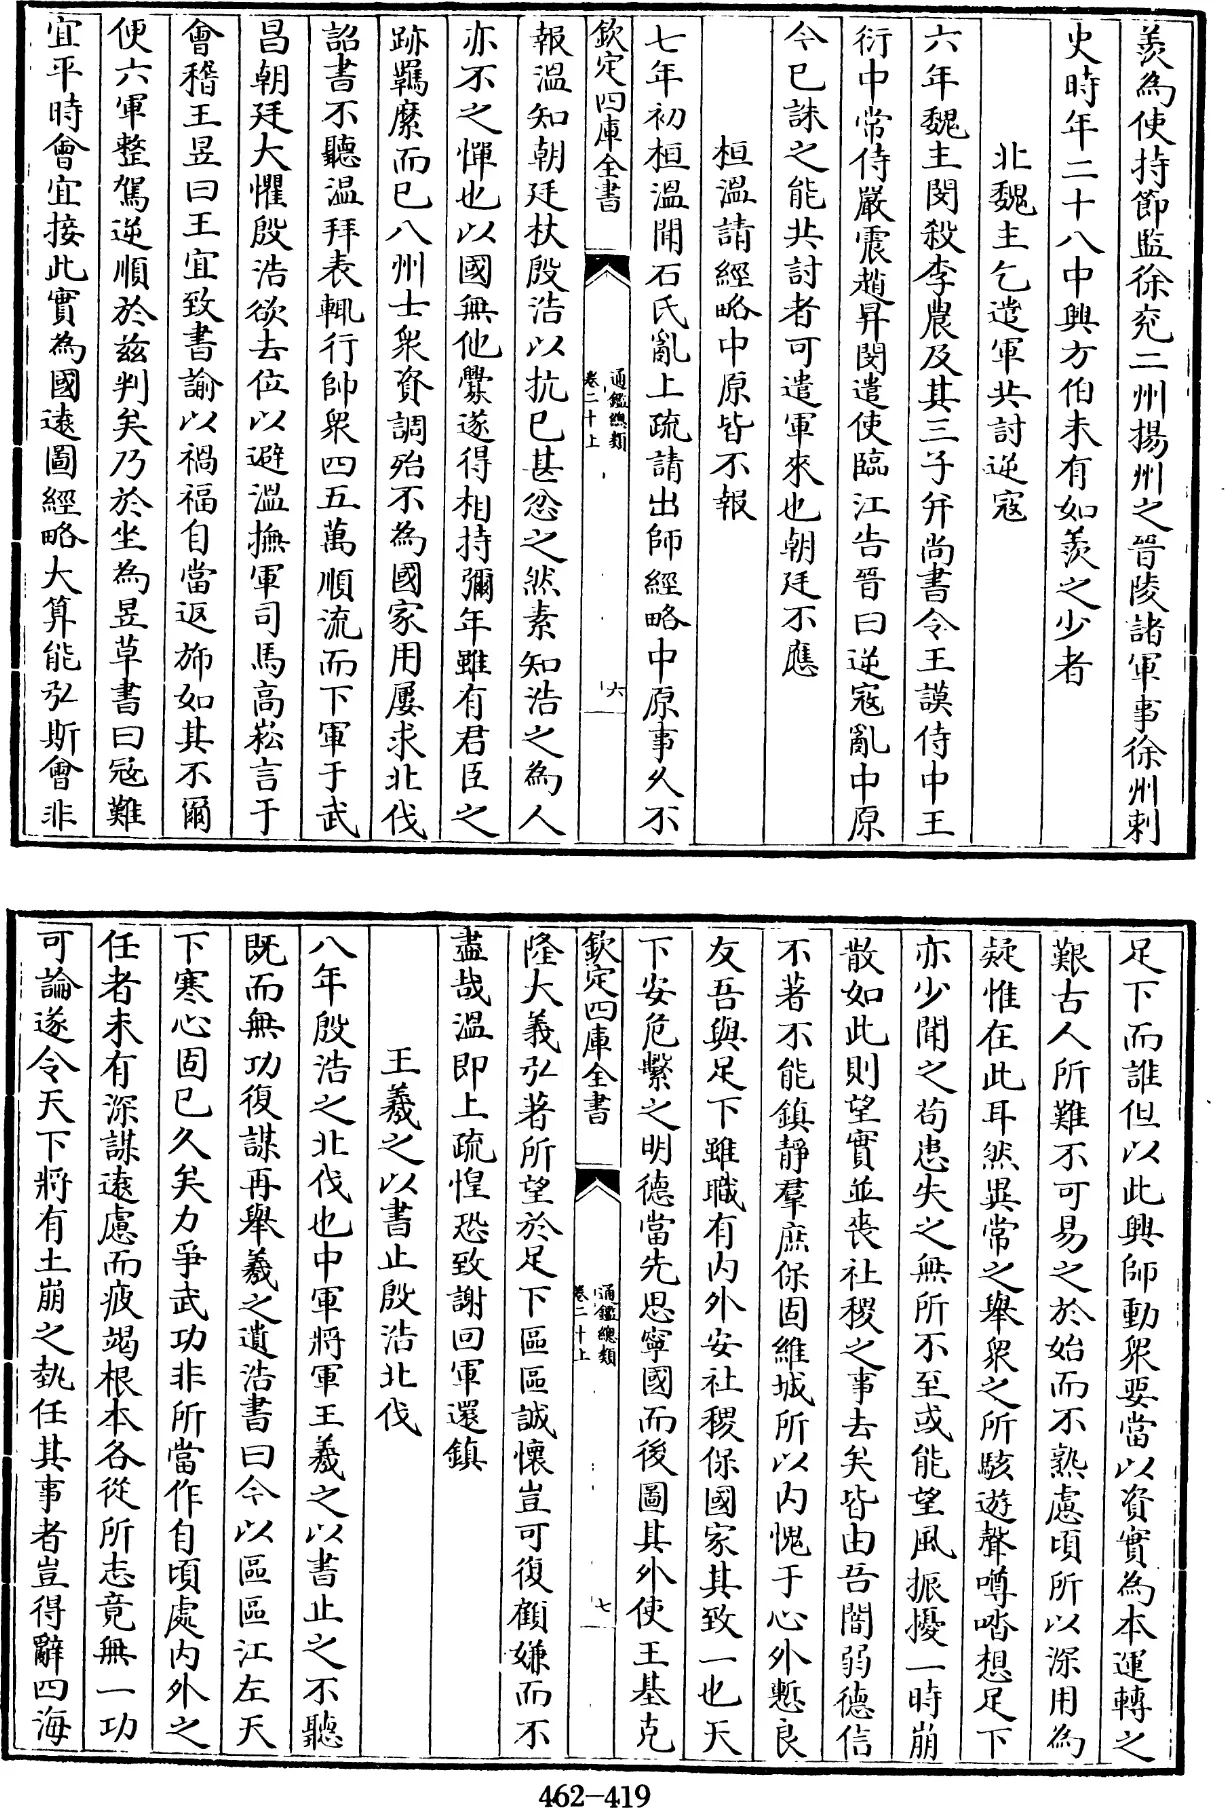 羨為使持節監徐兗二州揚州之晉陵諸軍事徐州刺
史時年二十八中興方伯未有如羨之少者
北魏主乞遣軍共討逆寇
六年魏主閔殺李農及其三子并尚書令王謨侍中王
衍中常侍嚴震趙昇閔遣使臨江告晉曰逆寇亂中原
今已誅之能共討者可遣軍來也朝廷不應
桓溫請經略中原皆不報
七年初桓溫聞石氏亂上疏請出師經略中原事久不
欽定四庫全書
通鑑總類
卷二十上
六
報溫知朝廷杖殷浩以抗已甚忿之然素知浩之為人
亦不之憚也以國無他釁遂得相持彌年雖有君臣之
跡羈縻而已八州士衆資調殆不為國家用屢求北伐
詔書不聽溫拜表輒行帥衆四五萬順流而下軍于武
昌朝廷大懼殷浩欲去位以避溫撫軍司馬高崧言于
會稽王昱曰王宜致書諭以禍福自當返斾如其不爾
便六軍整駕逆順於兹判矣乃於坐為昱草書曰寇難
宜平時會宜接此實為國遠圖經略大算能弘斯會非
足下而誰但以此興師動衆要當以資實為本運轉之
艱古人所難不可易之於始而不熟慮頃所以深用為
疑惟在此耳然異常之舉衆之所駭遊聲噂𠴲想足下
亦少聞之苟患失之無所不至或能望風振擾一時崩
散如此則望實並喪社稷之事去矣皆由吾闇弱德信
不著不能鎮靜羣庶保固維城所以内愧于心外慙良
友吾與足下雖職有内外安社稷保國家其致一也天
下安危繫之明德當先思寧國而後圖其外使王基克
欽定四庫全書
通鑑總類
卷二十上
七
隆大義弘著所望於足下區區誠懷豈可復顧嫌而不
盡哉溫即上疏惶恐致謝回軍還鎮
王羲之以書止殷浩北伐
八年殷浩之北伐也中軍將軍王羲之以書止之不聽
既而無功復謀再舉羲之遺浩書曰今以區區江左天
下寒心固已久矣力爭武功非所當作自頃處内外之
任者未有深謀遠慮而疲竭根本各從所志竟無一功
可論遂令天下將有土崩之埶任其事者豈得辭四海
462-419